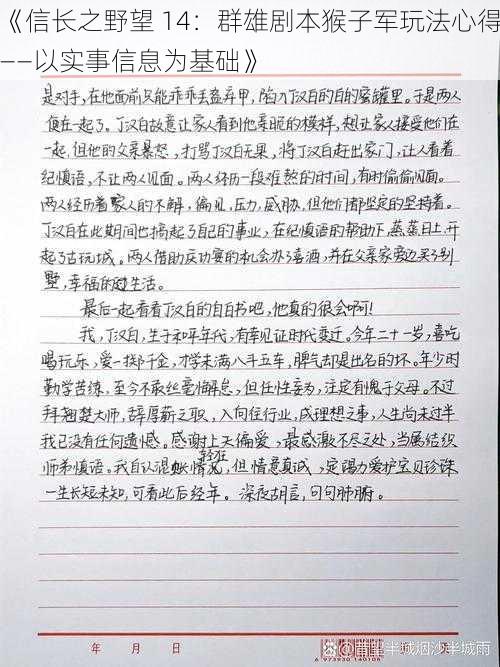 《信长之野望 14：群雄剧本猴子军玩法心得
——以实事信息为基础》
是对手，在他面前只能乖乖丢盔弃甲，陷入丁汉白的自的蜜罐里。于是两人
便在一起了。丁汉白故意让家人看到他亲昵的模样，想让家人接受他们在
一起，但他的父亲暴怒，打骂丁汉白无果，将丁汉白赶出家门，让人看着
纪慎语，不让两人见面。两人经历一段难熬的时间，有时偷偷见面。
两人经历着家人的不解，偏见，压力，威胁，但他们都坚定的坚持着。
丁汉白在此期间也搞起了自己的事业，在纪慎语的帮助下，蒸蒸日上，开
起了古玩城。两人借助庆功宴的机会办了喜酒，并在父亲家旁边买了别
墅，幸福的过生活。
最后一起看看丁汉白的自白书吧，他真的很会啊！
我，丁汉白，生于和平年代，有幸见证时代变迁。今年二十一岁，喜吃
喝玩乐，爱一掷千金，才学未满八斗五车，脾气却是出名的坏。年少时
勤学苦练，至今不敢丝毫懈怠，但任性妄为，注定有愧于父母。不过
拜翘楚大师，辞厚薪之职，入向往行业，成理想之事，人生尚未过半
我已没有任何遗憾。感谢上天偏爱，最感激不尽之处，当属结识
师弟慎语。我自认混账轻狂，但情意真诚，定竭力爱护宝贝珍珠
一生长短未知，可看此后经年。深夜胡言，句句肺腑。
年 月 日
9 973930 140106
雨里半城烟沙半城雨